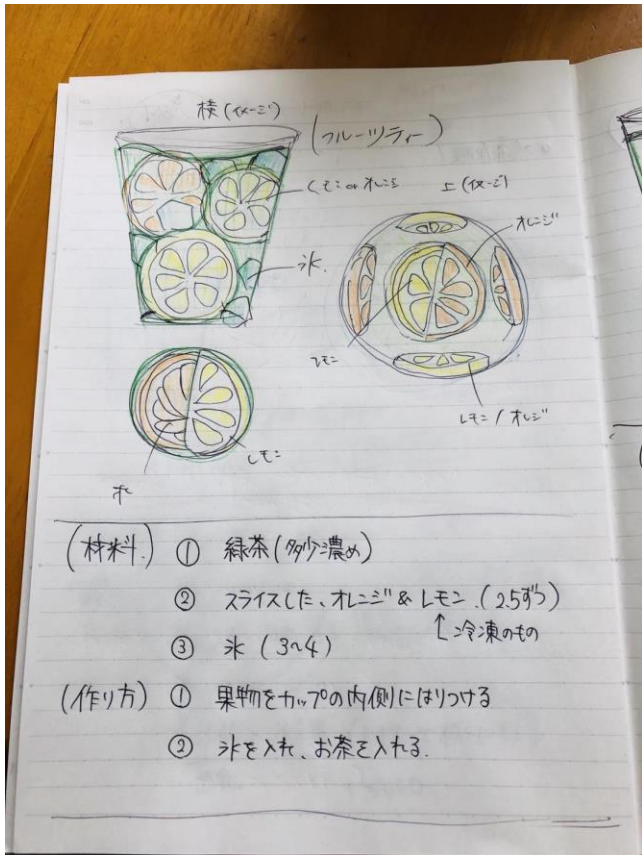 横(イメージ)
(フルーツティー)
レモン or オレンジ
上(イメージ)
オレンジ
氷.
レモン
レモン / オレンジ
レモン
(材料.) ① 緑茶(多少濃め)
② スライスした、オレンジ & レモン.(2.5ずつ)
↑冷凍のもの
③ 氷 (3~4)
(作り方) ① 果物をカップの内側にはりつける
② 氷を入れ、お茶を入れる.